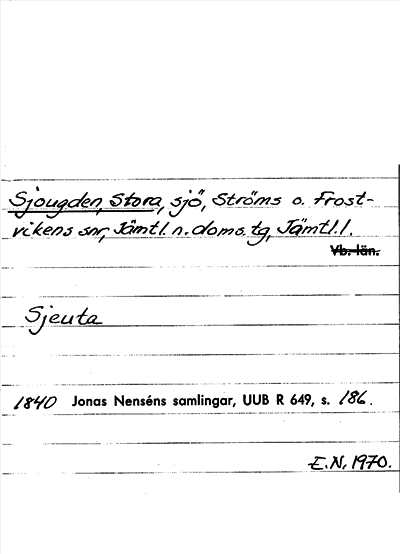 Sjougden, Stora, sjö, Ströms o. Frost-
vikens snr, Jämtl. n. doms. tg, Jämtl. l.
Vb. län.
Sjeuta
1840 Jonas Nenséns samlingar, UUB R 649, s. 186.
E.N. 1970.